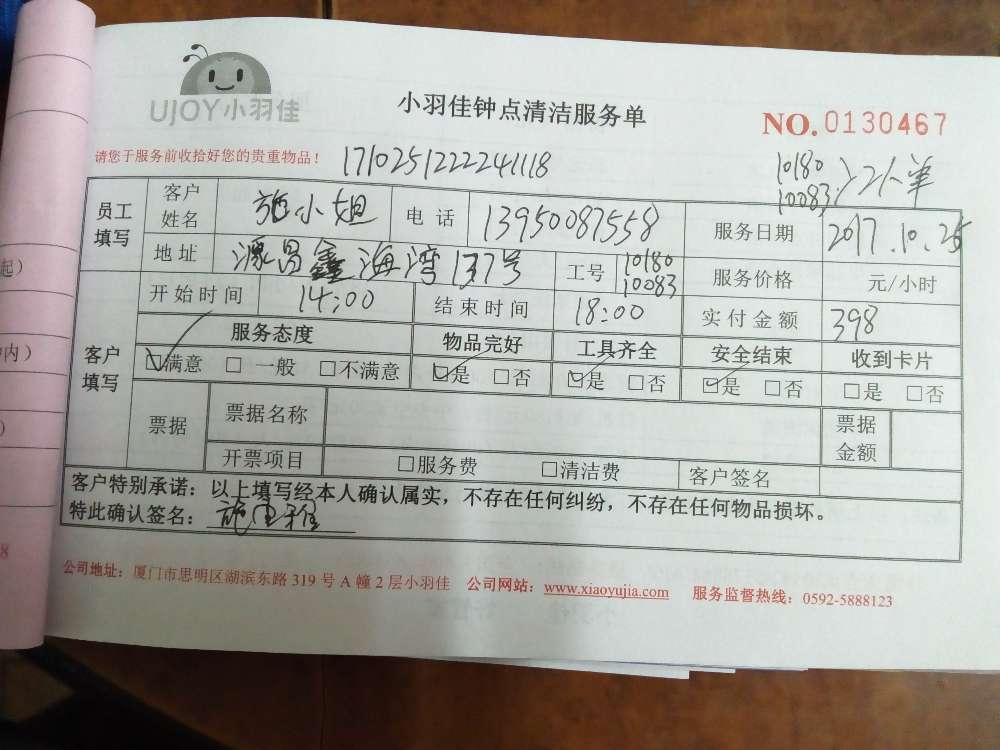 UJOY小羽佳
小羽佳钟点清洁服务单
NO.0130467
请您于服务前收拾好您的贵重物品！
1710251222241118
10180
10083
员工填写
客户姓名 施小姐 电话 13950087558 服务日期 2017.10.25
地址 源昌鑫海湾137号 工号 10180 10083 服务价格 元/小时
开始时间 14:00 结束时间 18:00 实付金额 398
客户填写
服务态度 物品完好 工具齐全 安全结束 收到卡片
☑满意 □一般 □不满意 ☑是 □否 ☑是 □否 ☑是 □否 □是 □否
票据 票据名称 票据金额
开票项目 □服务费 □清洁费 客户签名
客户特别承诺：以上填写经本人确认属实，不存在任何纠纷，不存在任何物品损坏。
特此确认签名：施
公司地址：厦门市思明区湖滨东路319号A幢2层小羽佳 公司网站：www.xiaoyujia.com 服务监督热线：0592-5888123
起）
内）
）
8